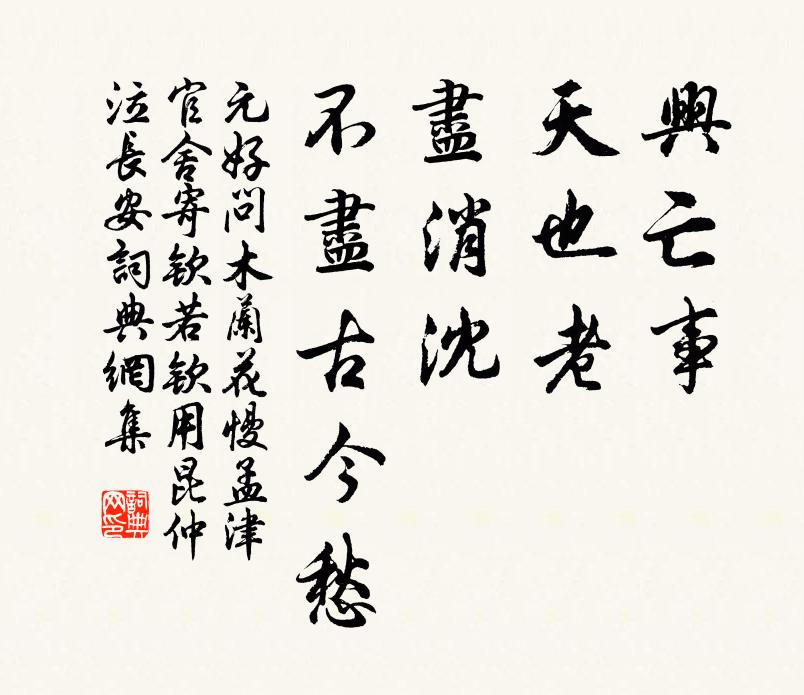 興亡事
天也老
盡消沈
不盡古今愁
元好問木蘭花慢孟津
官舍寄欽若欽用昆仲
泣長安詞典網集
詞典网印